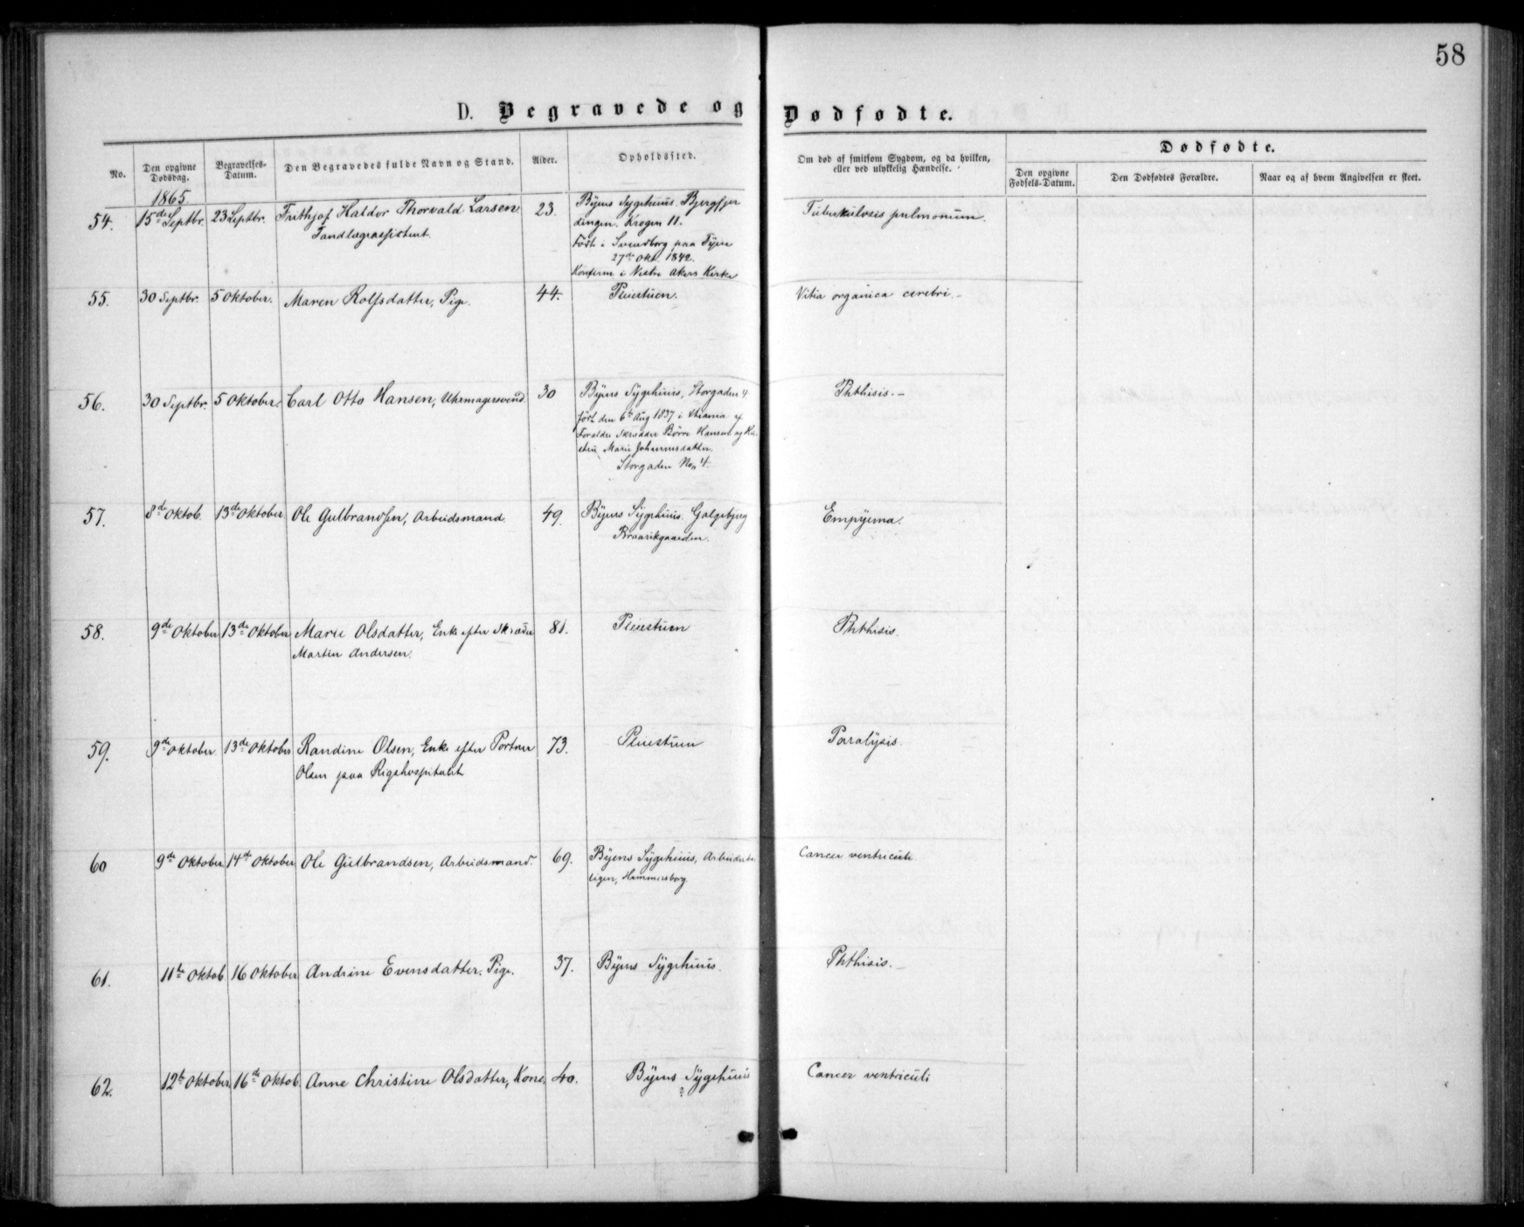 58
D. Begravede og Dødfødte.
No.
Den opgivne Dødsdag.
Begravelses-Datum.
Den Begravedes fulde Navn og Stand.
Alder.
Opholdssted.
Om død af smitsom Sygdom, og da hvilken,
eller ved ulykkelig Hændelse.
Dødfødte.
Den opgivne Fødsels-Datum.
Den Dødfødtes Forældre.
Naar og af hvem Angivelsen er skeet.
1865
54. 15de Septbr. 23 Septbr. Frithjof Haldor Thorvald Larsen 23. Byens Sygehuus. Bjergfjer Tuberkulosis pulmonum.
Tandlægeassistent. dingen. Krogen 11.
Født i Svendborg paa Fyen
27de Okt. 1842.
Konfirm i Vestre Akers Kirke
55. 30 Septbr. 5 Oktober. Maren Rolfsdatter, Pige. 44. Pleiestuen. Vitia organica cerebri.
56. 30 Septbr. 5 Oktober. Carl Otto Hansen, Uhrmagersvend 30 Byens Sygehuus, Storgaden 4 Phthisis.
født den 6te Aug 1837 i Chrania af
Forældre Skrædder Børre Hansen og Hu
stru Marie Johannesdatter.
Storgaden No 4.
57. 8de Oktob. 13de Oktober Ole Gulbrandsen, Arbeidsmand. 49. Byens Sygehuus. Galgebjerg Empyema.
58. 9de Oktober 13de Oktober Marie Olsdatter, Enke efter Skræder 81. Pleiestuen Phthisis.
Martin Andersen.
59. 9de Oktober 13de Oktober Randine Olsen, Enke efter Portner 73. Pleiestuen Paralysis.
Olsen paa Rigshospitalet
60 9de Oktober 14de Oktober Ole Gulbrandsen, Arbeidsmand 69. Byens Sygehuus, Arbeiderbo Cancer ventriculi
ligen, Hammersborg
61. 11te Oktob 16 Oktober Andrine Evensdatter. Pige. 37. Byens Sygehuus. Phthisis.
62. 12te Oktober 16de Oktob. Anne Christine Olsdatter, Kone, 40. Byens Sygehuus Cancer ventriculi